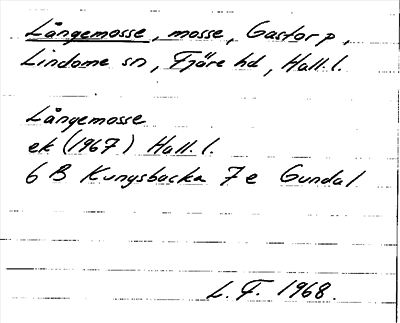 Långemosse, mosse, Gastorp,
Lindome sn, Fjäre hd, Hall. l.
Långemosse
ek (1967) Hall. l.
6 B Kungsbacka 7e Gundal
L. F. 1968.